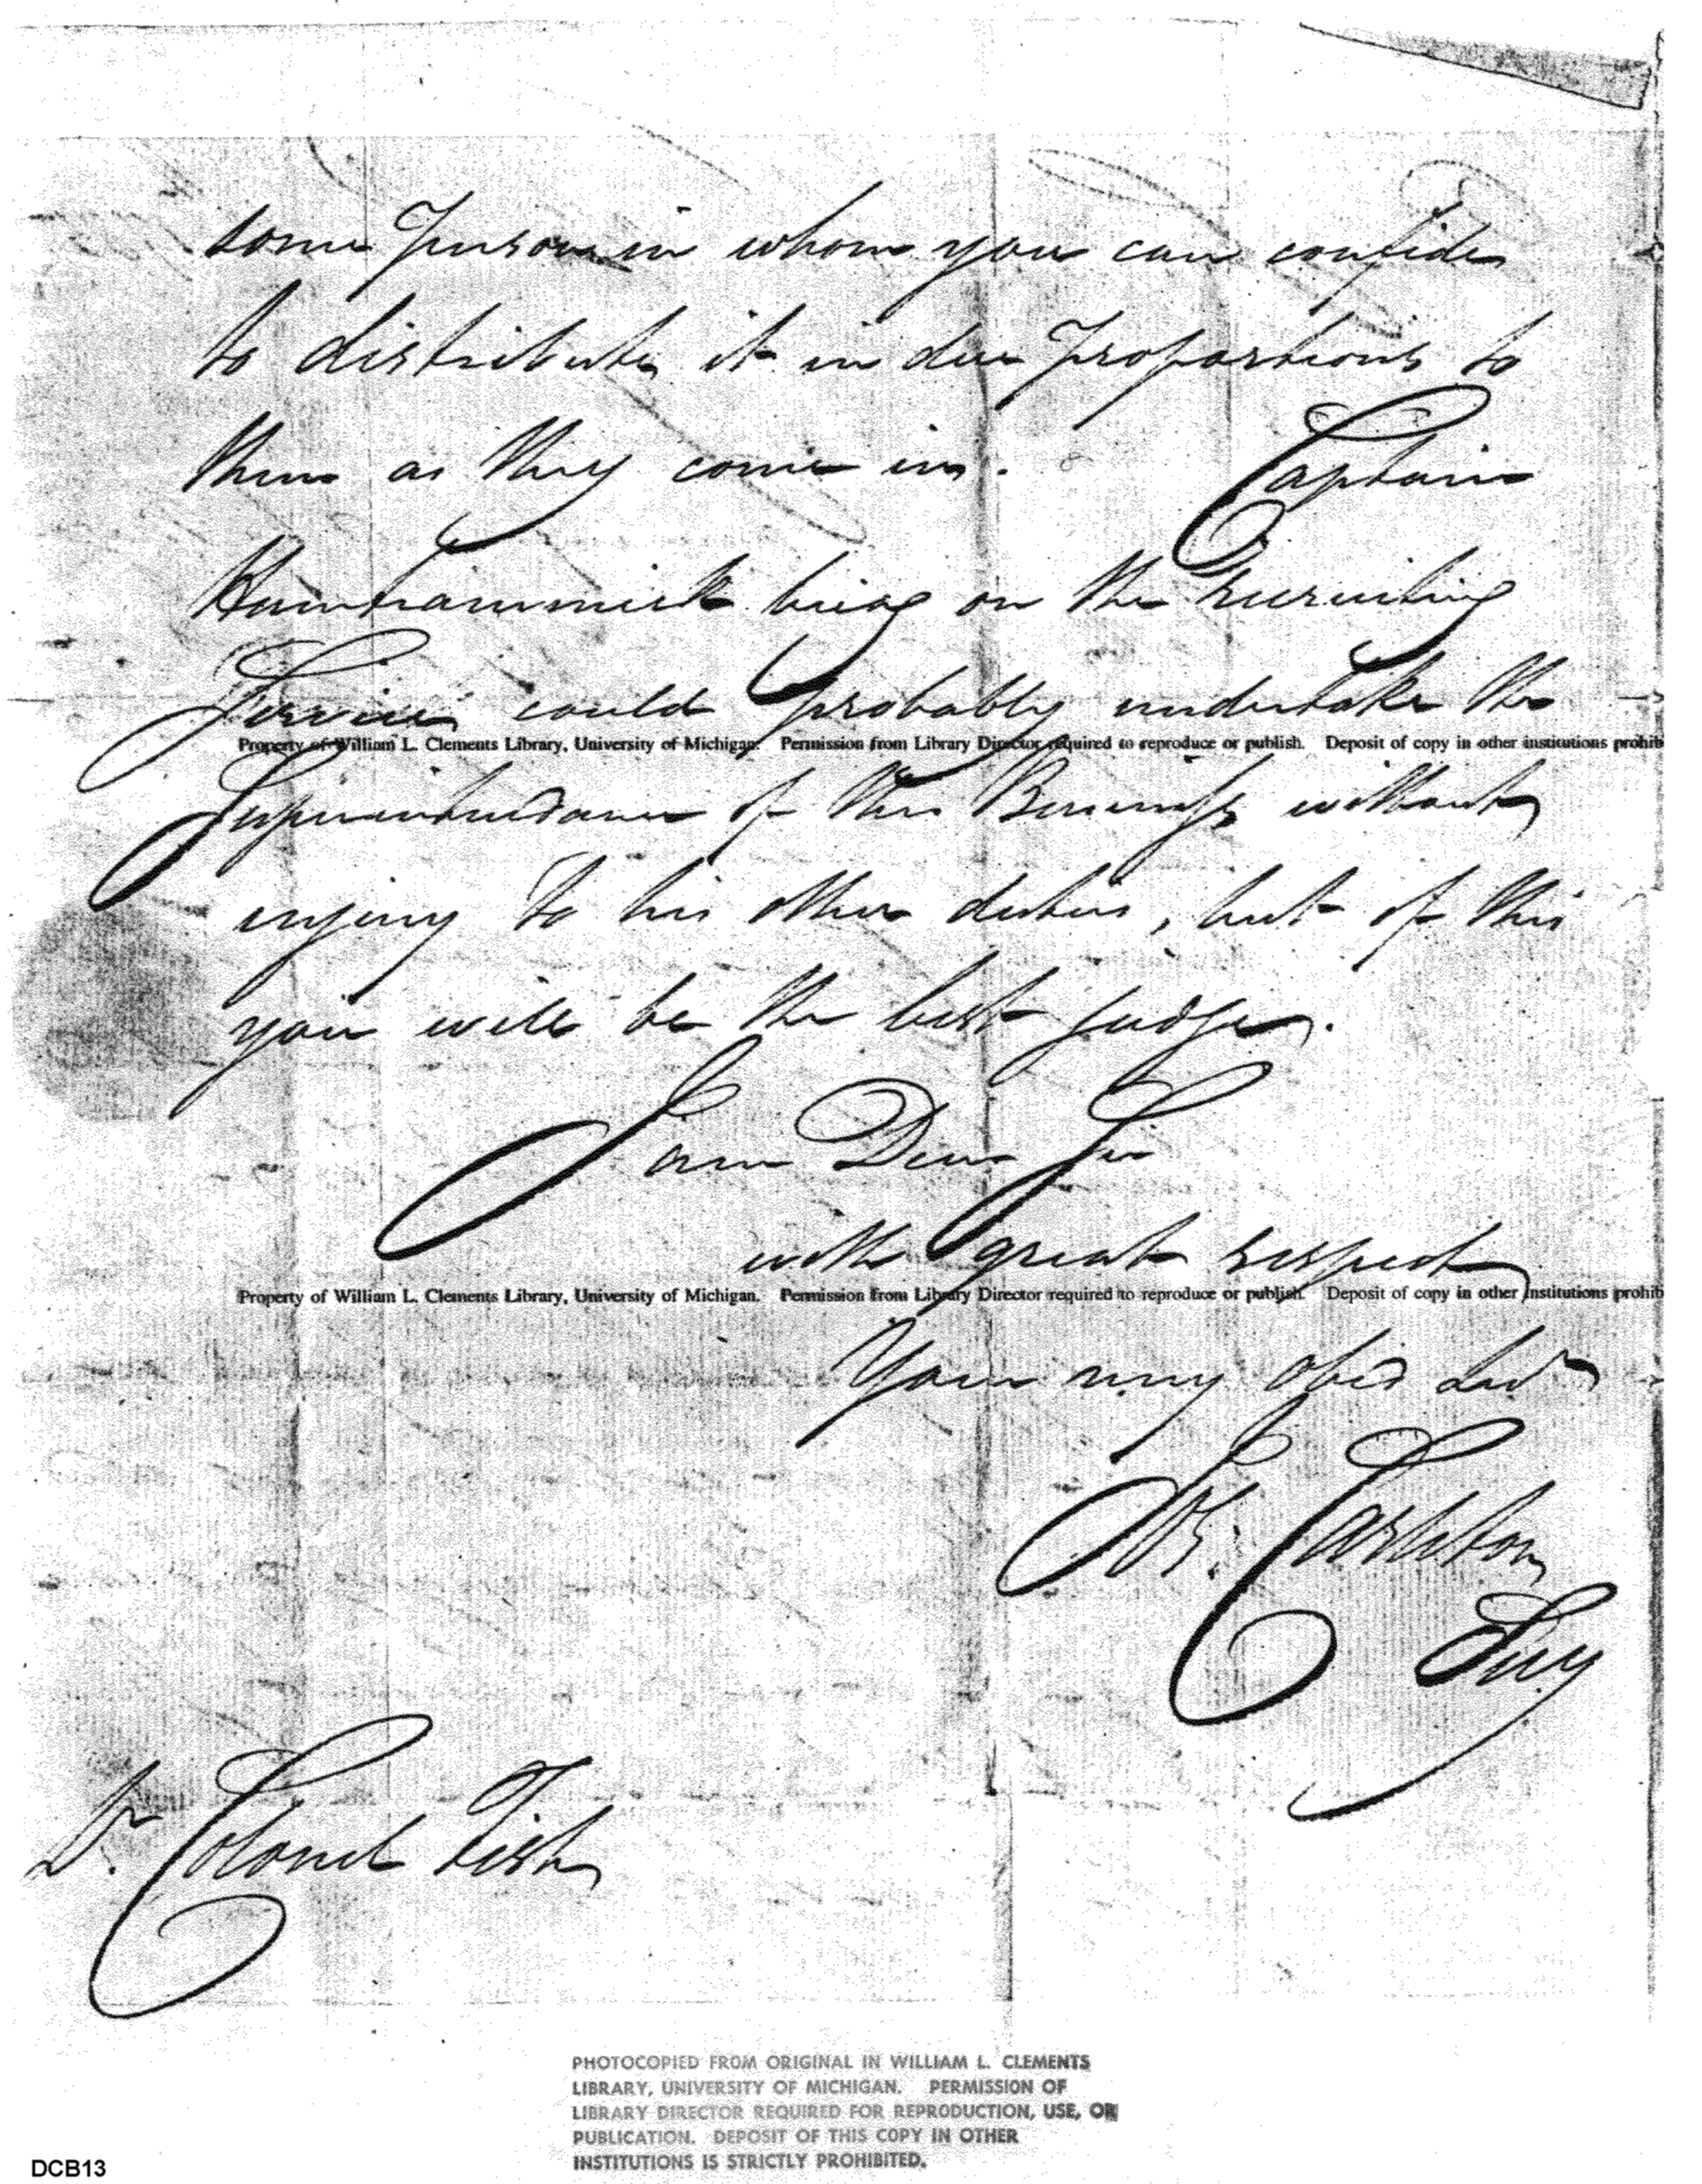 some Person in whom you can confide
to distribute it in due Proportions to
them as they come in. Captain
Hamtrammick being on the recruiting
Service could probably undertake the
Property of William L. Clements Library, University of Michigan. Permission from Library Director required to reproduce or publish. Deposit of copy in other institutions prohib
Superintendance of this Business without
injury to his other duties, but of this
you will be the best judge.
I am Dear Sir
with great respect
Property of William L. Clements Library, University of Michigan. Permission from Library Director required to reproduce or publish. Deposit of copy in other institutions prohib
Your very obed
Jos. Carleton
Secy
Colonel Fish
PHOTOCOPIED FROM ORIGINAL IN WILLIAM L. CLEMENTS
LIBRARY, UNIVERSITY OF MICHIGAN. PERMISSION OF
LIBRARY DIRECTOR REQUIRED FOR REPRODUCTION, USE, OR
PUBLICATION. DEPOSIT OF THIS COPY IN OTHER
INSTITUTIONS IS STRICTLY PROHIBITED.
DCB13